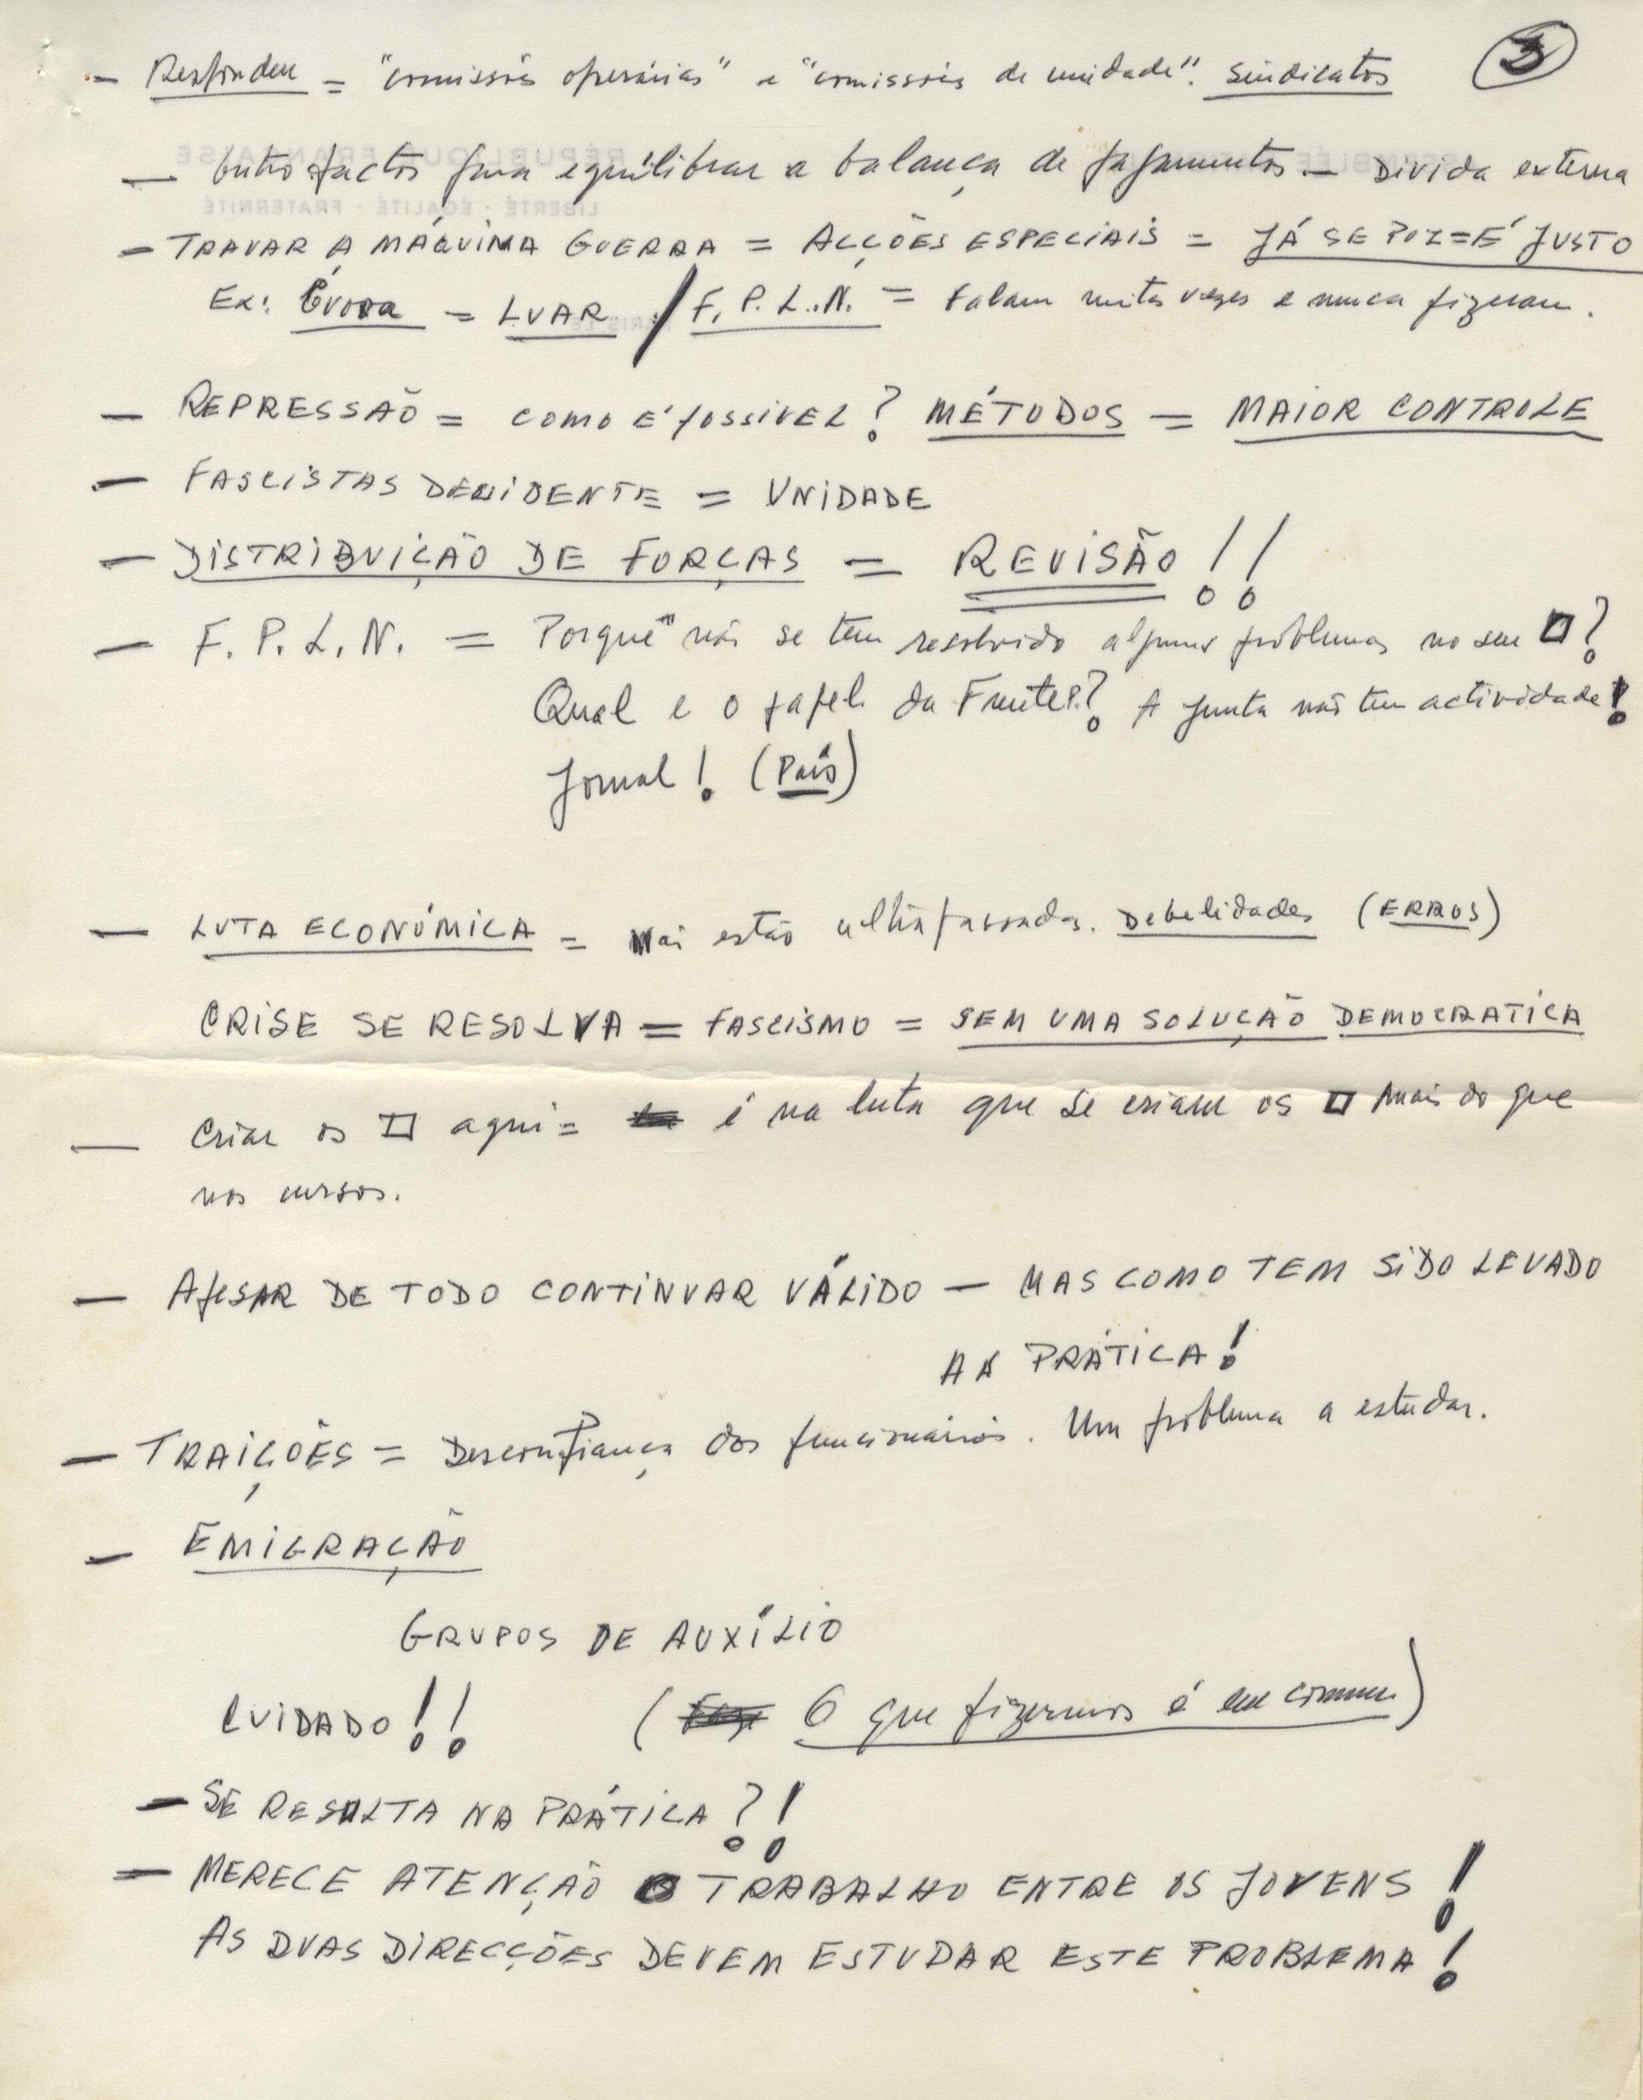 3
— Responder = "comissões operárias" e "comissões de unidade". Sindicatos
— Outro factos para equilibrar a balança de pagamentos — Divida externa
— TRAVAR A MÁQUINA GUERRA = ACÇÕES ESPECIAIS = JÁ SE POZ = É JUSTO
Ex: Évora = LUAR / F.P.L.N. = Falam muitas vezes e nunca fizeram.
— REPRESSÃO = COMO É POSSIVEL? MÉTODOS = MAIOR CONTROLE
— FASCISTAS DECIDENTE = UNIDADE
— DISTRIBUIÇÃO DE FORÇAS = REVISÃO!!
— F.P.L.N. = Porquê não se tem resolvido alguns problemas no seu □?
Qual e o papel da Frente? A Junta não tem actividade!
Jornal! (País)
— LUTA ECONÓMICA = Não estão ultrapassadas. Debelidades (ERROS)
CRISE SE RESOLVA = FASCISMO = SEM UMA SOLUÇÃO DEMOCRATICA
— Criar os □ aqui = é na luta que se criam os □ mais do que
nos cursos.
— APESAR DE TODO CONTINUAR VÁLIDO — MAS COMO TEM SIDO LEVADO
AA PRÁTICA!
— TRAIÇÕES = Desconfiança dos funcionários. Um problema a estudar.
— EMIGRAÇÃO
GRUPOS DE AUXÍLIO
CUIDADO!! ( O que fizermos é em comum)
— SE RESULTA NA PRÁTICA?!
— MERECE ATENÇÃO O TRABALHO ENTRE OS JOVENS!
AS DUAS DIRECÇÕES DEVEM ESTUDAR ESTE PROBLEMA!